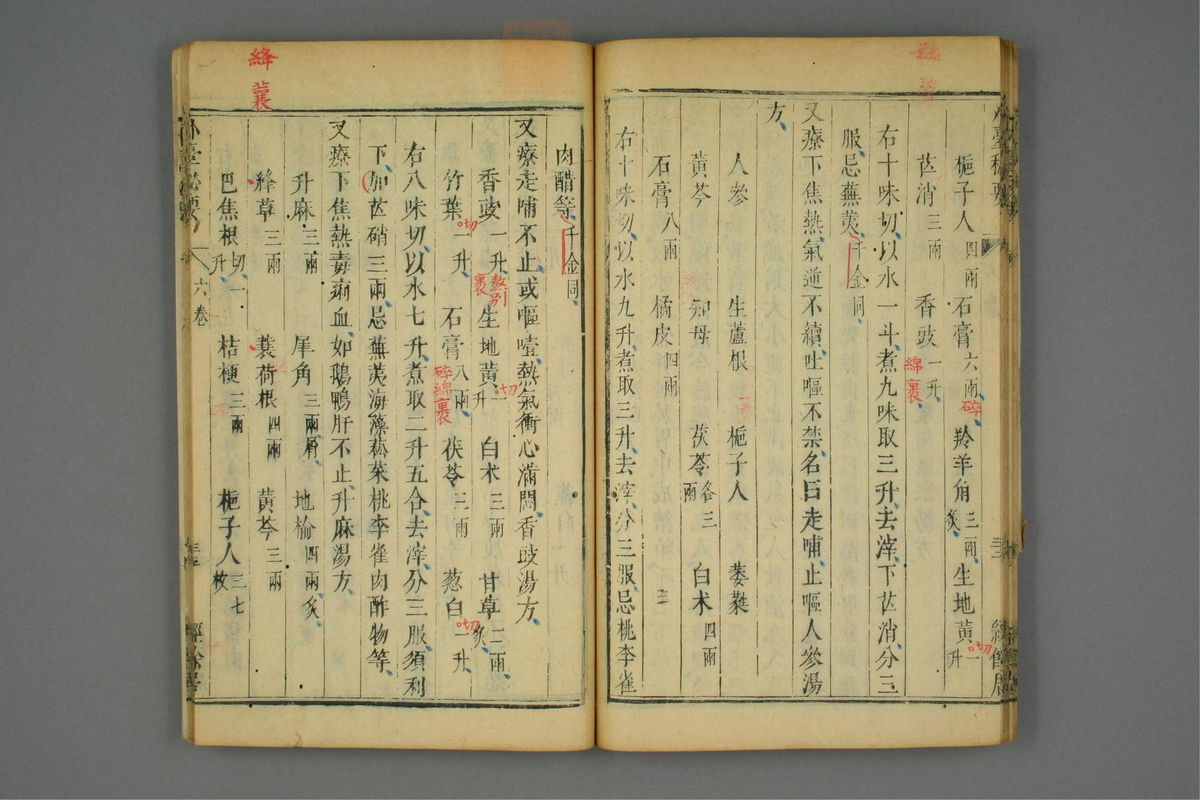 梔子人四兩 石膏六兩碎 羚羊角三兩炙 生地黃切一升
芒消三兩 香豉一升綿裹
右十味切以水一斗煮九味取三升去滓下芒消分三
服忌蕪荑千金同
又療下焦熱氣逆不續吐嘔不禁名曰走哺止嘔人參湯
方
人參 生蘆根 梔子人 萎蕤
黃芩 知母 茯苓各三兩 白朮四兩
石膏八兩 橘皮四兩
右十味切以水九升煮取三升去滓分三服忌桃李雀
肉醋等千金同
又療走哺不止或嘔噎熱氣衝心滿悶香豉湯方
香豉一升熬別裹 生地黃切一升 白朮三兩 甘草二兩炙
竹葉切一升 石膏八兩碎綿裹 茯苓三兩 葱白切一升
右八味切以水七升煮取二升五合去滓分三服須利
下加芒硝三兩忌蕪荑海藻菘菜桃李雀肉酢物等
又療下焦熱毒痢血如鵝鴨肝不止升麻湯方
升麻三兩 犀角三兩屑 地榆四兩炙
絳草三兩 蘘荷根四兩 黃芩三兩
巴焦根切一升 桔梗三兩 梔子人三七枚
絳
蘘
外臺秘要
六卷